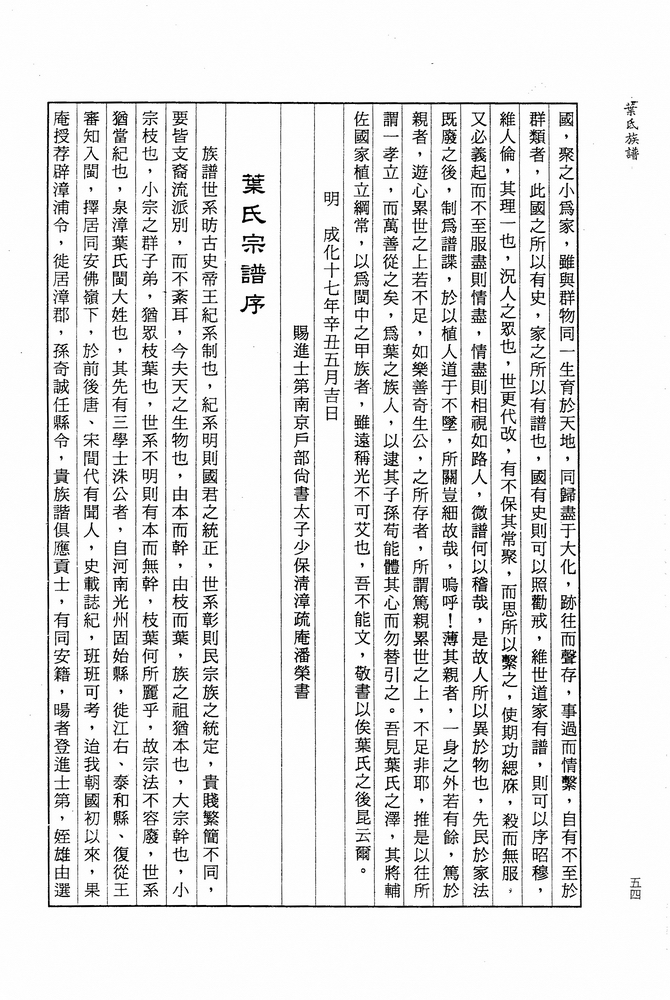 葉氏族譜
五四
國，聚之小爲家，雖與群物同一生育於天地，同歸盡于大化，跡往而聲存，事過而情繫，自有不至於
群類者，此國之所以有史，家之所以有譜也，國有史則可以照勸戒，維世道家有譜，則可以序昭穆，
維人倫，其理一也，況人之眾也，世更代改，有不保其常聚，而思所以繫之，使期功緦庥，殺而無服，
又必義起而不至服盡則情盡，情盡則相視如路人，微譜何以稽哉，是故人所以異於物也，先民於家法
既廢之後，制爲譜諜，於以植人道于不墜，所關豈細故哉，嗚呼！薄其親者，一身之外若有餘，篤於
親者，遊心累世之上若不足，如樂善奇生公，之所存者，所謂篤親累世之上，不足非耶，推是以往所
謂一孝立，而萬善從之矣，爲葉之族人，以逮其子孫苟能體其心而勿替引之。吾見葉氏之澤，其將輔
佐國家植立綱常，以爲閩中之甲族者，雖遠稱光不可艾也，吾不能文，敬書以俟葉氏之後昆云爾。
明　成化十七年辛丑五月吉日
賜進士第南京戶部尙書太子少保淸漳疏庵潘榮書
葉氏宗譜序
族譜世系昉古史帝王紀系制也，紀系明則國君之統正，世系彰則民宗族之統定，貴賤繁簡不同，
要皆支裔流派別，而不紊耳，今夫天之生物也，由本而幹，由枝而葉，族之祖猶本也，大宗幹也，小
宗枝也，小宗之群子弟，猶眾枝葉也，世系不明則有本而無幹，枝葉何所麗乎，故宗法不容廢，世系
猶當紀也，泉漳葉氏閩大姓也，其先有三學士洙公者，自河南光州固始縣，徙江右、泰和縣、復從王
審知入閩，擇居同安佛嶺下，於前後唐、宋間代有聞人，史載誌紀，班班可考，迨我朝國初以來，果
庵授荐辟漳浦令，徙居漳郡，孫奇誠任縣令，貴族諧俱應貢士，有同安籍，暘者登進士第，姪雄由選